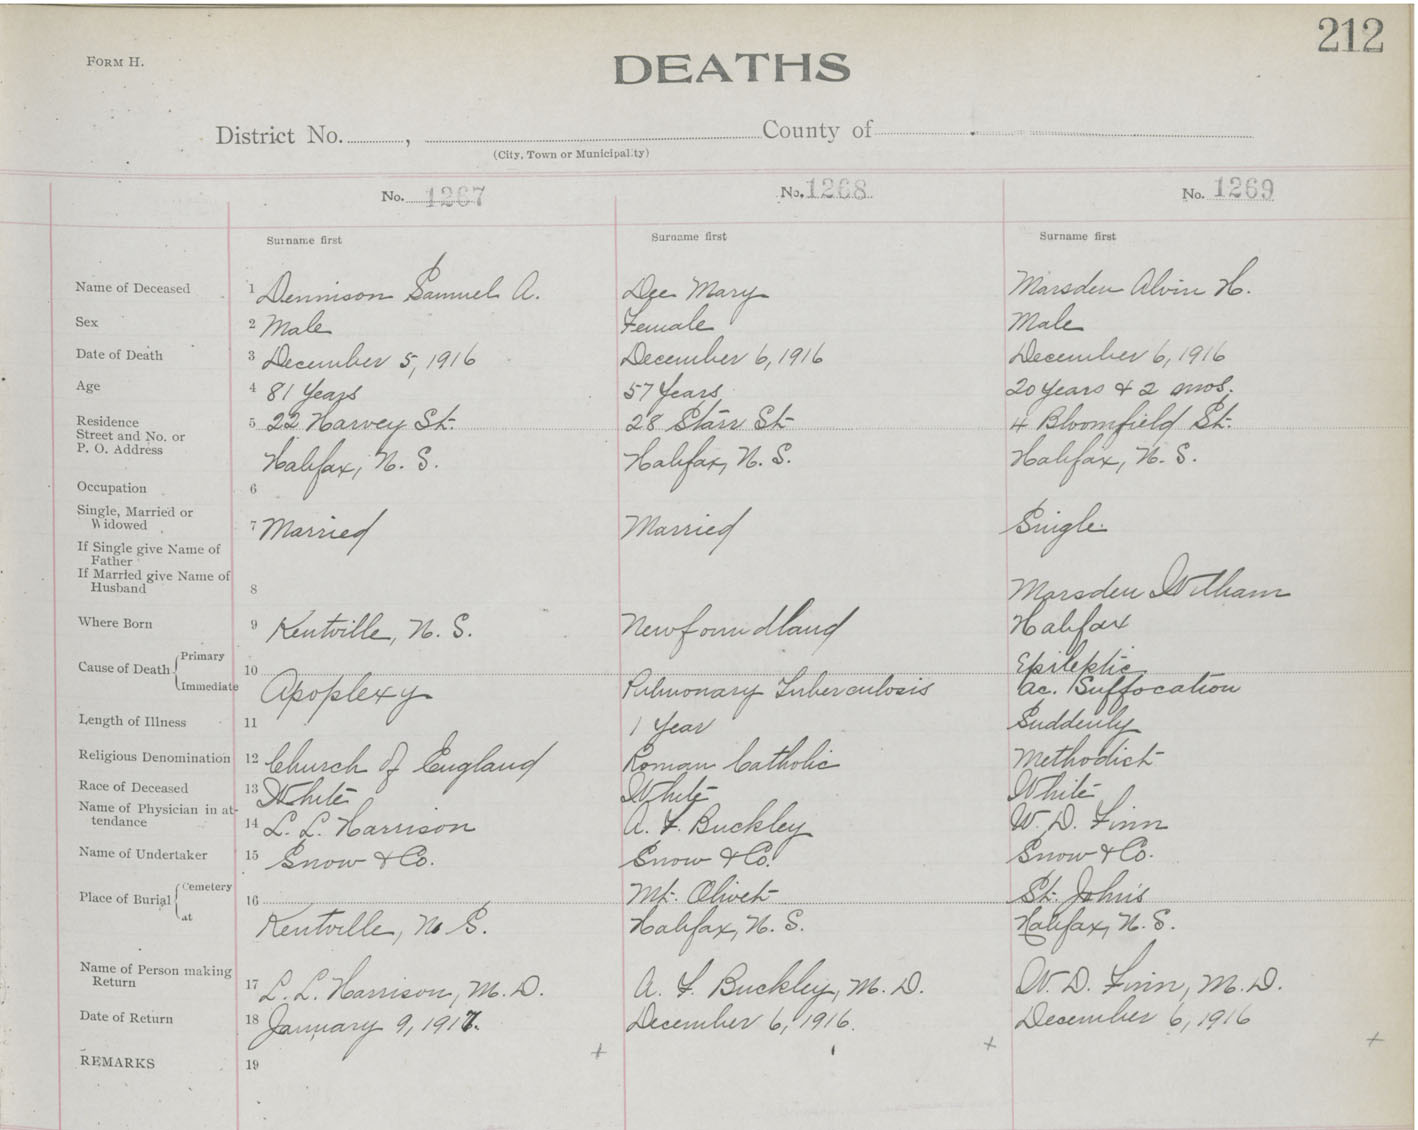 212
FORM H.
DEATHS
District No. , County of
(City, Town or Municipality)
No. 1267 No. 1268 No. 1269
Surname first Surname first Surname first
Name of Deceased 1 Dennison Samuel A. Dee Mary Marsden Alvin H.
Sex 2 Male Female Male
Date of Death 3 December 5, 1916 December 6, 1916 December 6, 1916
Age 4 81 Years 57 Years 20 Years & 2 mos.
Residence
Street and No. or 5 22 Harvey St. 28 Starr St. 4 Bloomfield St.
P. O. Address Halifax, N. S. Halifax, N. S. Halifax, N. S.
Occupation 6
Single, Married or
Widowed 7 Married Married Single
If Single give Name of
Father
If Married give Name of
Husband 8 Marsden Witham
Where Born 9 Kentville, N. S. Newfoundland Halifax
Cause of Death Primary 10 Epileptic
Immediate Apoplexy Pulmonary Tuberculosis ac. Suffocation
Length of Illness 11 1 Year Suddenly
Religious Denomination 12 Church of England Roman Catholic Methodist
Race of Deceased 13 White White White
Name of Physician in at-
tendance 14 L. L. Harrison A. F. Buckley W. D. Finn
Name of Undertaker 15 Snow & Co. Snow & Co. Snow & Co.
Place of Burial Cemetery 16 Mt. Olivet St. John's
at Kentville, N. S. Halifax, N. S. Halifax, N. S.
Name of Person making
Return 17 L. L. Harrison, M. D. A. F. Buckley, M. D. W. D. Finn, M. D.
Date of Return 18 January 9, 1917. December 6, 1916. December 6, 1916
REMARKS 19